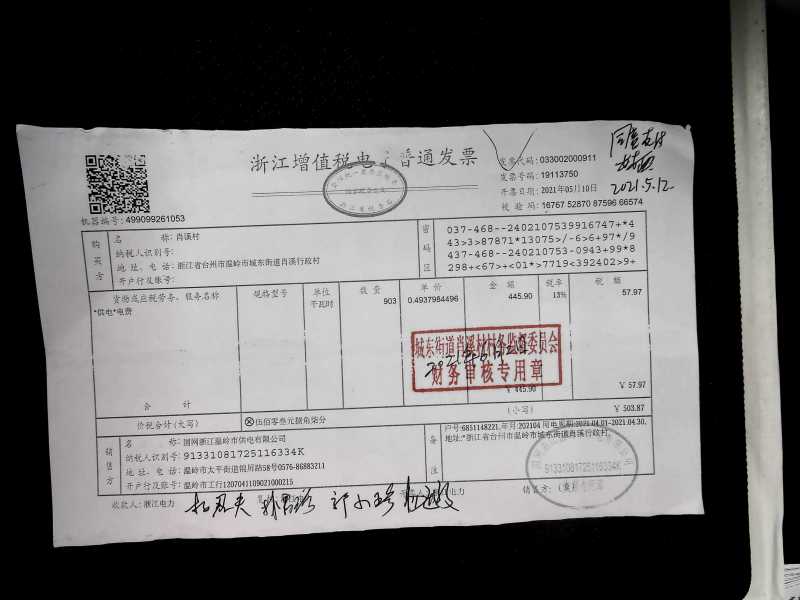 浙江增值税电子普通发票
发票代码: 033002000911
发票号码: 19113750
开票日期: 2021年05月10日
校验码: 16767 52870 87596 66574
机器编号: 499099261053
同意支付
2021.5.12
购买方
名称: 肖溪村
纳税人识别号:
地址、电话: 浙江省台州市温岭市城东街道肖溪行政村
开户行及账号:
密码区
037-468--2402107539916747+*4
43>3>87871*13075>/-6>6+97*/9
437-468--240210753-0943+99*8
298+<67>+<01*>7719<392402>9+
货物或应税劳务、服务名称 规格型号 单位 数量 单价 金额 税率 税额
*供电*电费 千瓦时 903 0.4937984496 445.90 13% 57.97
城东街道肖溪村村务监督委员会
财务审核专用章
合计 ¥ 445.90 ¥ 57.97
价税合计(大写) ⊗伍佰零叁元捌角柒分 (小写) ¥ 503.87
销售方
名称: 国网浙江温岭市供电有限公司
纳税人识别号: 91331081725116334K
地址、电话: 温岭市太平街道锦屏路58号0576-86883211
开户行及账号: 温岭市工行1207041109021000215
备注
户号:6851148221,年月:202104 用电周期:2021.04.01-2021.04.30,
地址:*浙江省台州市温岭市城东街道肖溪行政村
91331081725116334K
收款人: 浙江电力 销售方: (章)